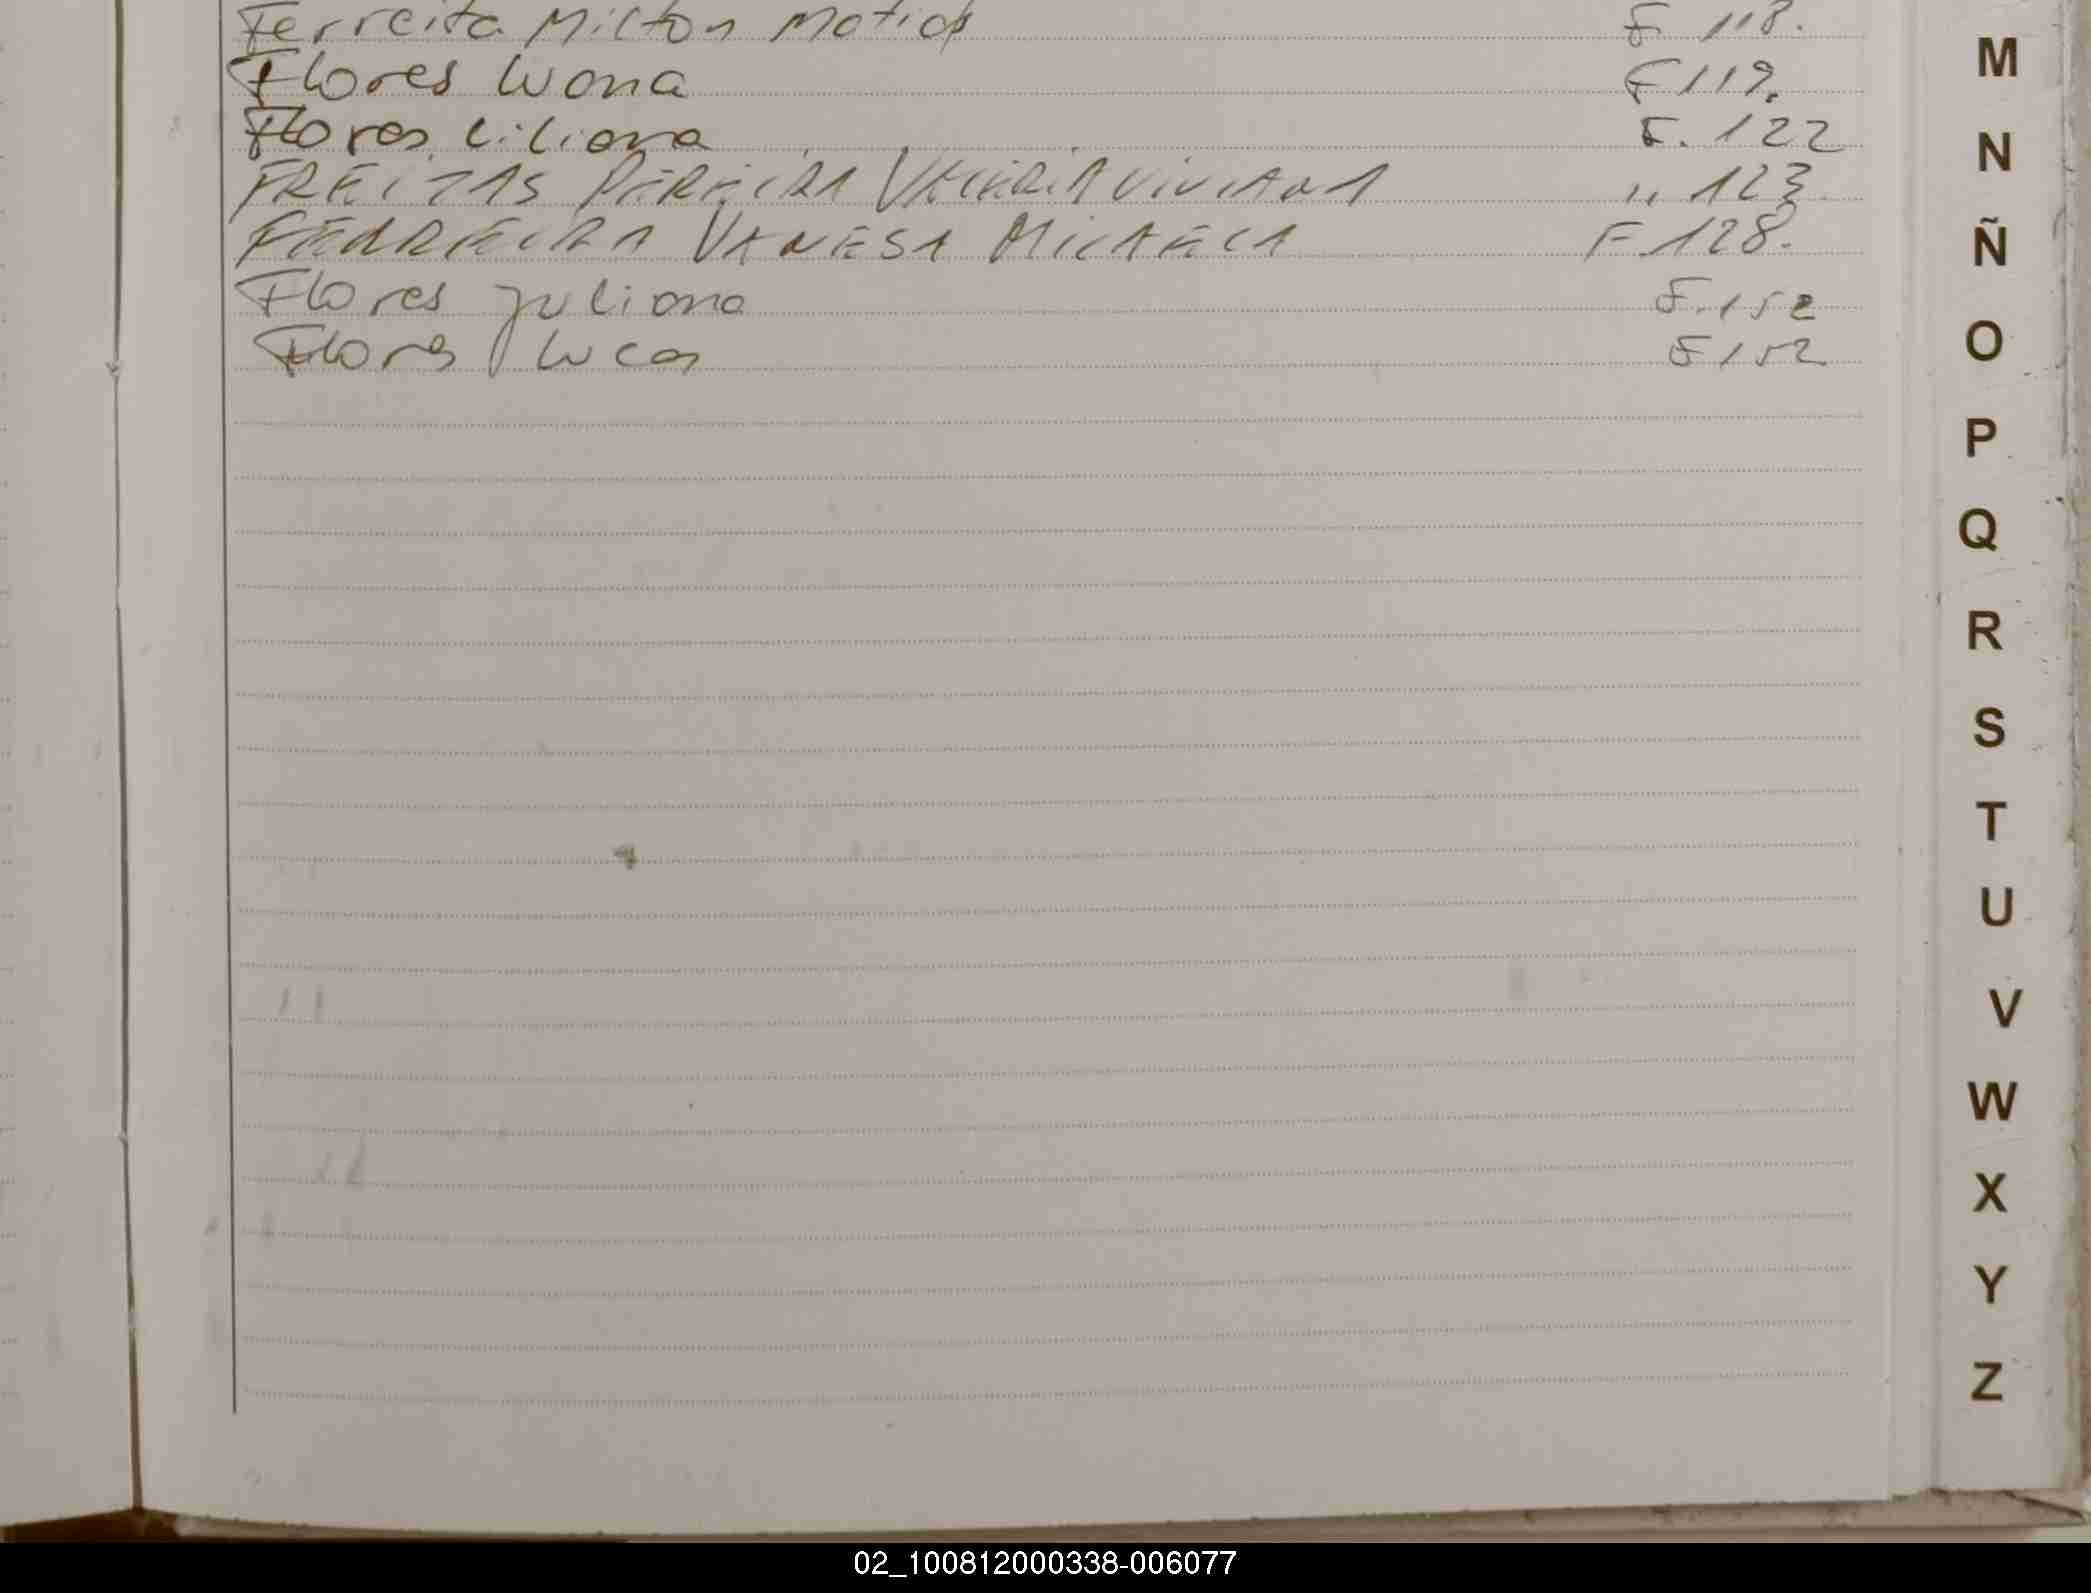 Ferreira Milton Matias F 118.
Flores Luana F 119.
Flores Liliana F. 122
FREITAS PEREIRA VALERIA VIVIANA " 123
FERREIRA VANESA MICAELA F 128.
Flores Juliana F. 152
Flores Lucas F 152
M
N
Ñ
O
P
Q
R
S
T
U
V
W
X
Y
Z
02_100812000338-006077